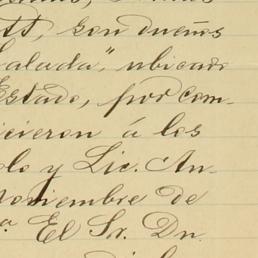 tt, son dueños
alada", ubicado
Estado, por com-
icieron á los
olo y Lic. An-
Noviembre de
ª El Sr. Dn.